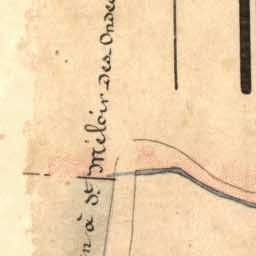 n à St. Méloir des Ondes